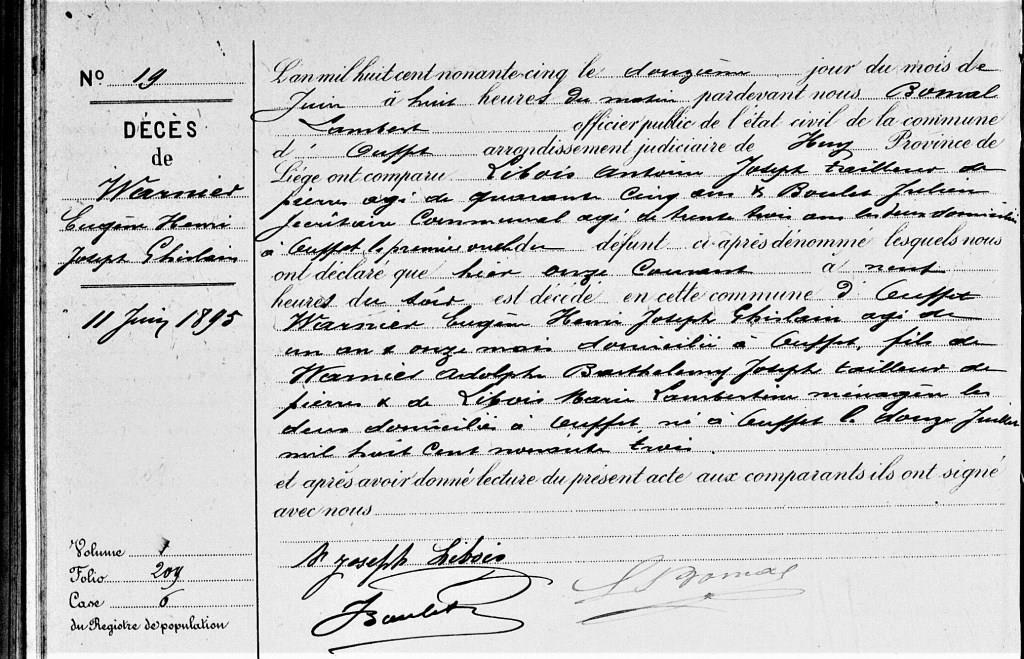 N° 19
DÉCÈS
de
Warnier
Eugène Henri
Joseph Ghislain
11 Juin 1895
L'an mil huit cent nonante-cinq le douzième jour du mois de
Juin à huit heures du matin pardevant nous Bomal
Lambert officier public de l'état civil de la commune
d' Ouffet arrondissement judiciaire de Huy Province de
Liége ont comparu Libois Antoine Joseph tailleur de
pierres agé de quarante cinq ans & Boulet Julien
secrétaire communal agé de trente trois ans les deux domiciliés
à Ouffet, le premier oncle du défunt ci-après dénommé lesquels nous
ont déclaré que hier onze courant à neuf
heures du soir est décédé en cette commune d' Ouffet
Warnier Eugène Henri Joseph Ghislain agé de
un an & onze mois domicilié à Ouffet, fils de
Warnier Adolphe Barthelemy Joseph tailleur de
pierres & de Libois Marie Lambertine ménagère les
deux domiciliés à Ouffet né à Ouffet le douze Juillet
mil huit cent nonante trois.
et après avoir donné lecture du présent acte aux comparants ils ont signé
avec nous
Joseph Libois
L Bomal
JBoulet
Volume 1
Folio 209
Case 6
du Registre de population